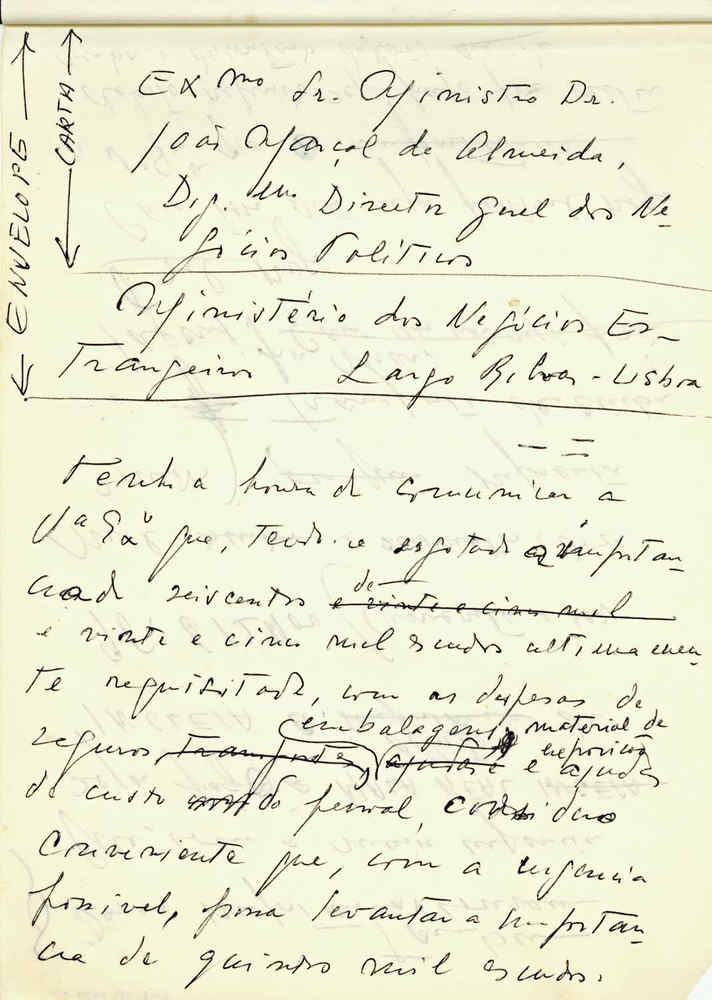 ENVELOPE
CARTA
Exmo Sr. Ministro Dr.
João Marçal de Almeida,
Dig.mo Director Geral dos Ne-
gócios Políticos
Ministério dos Negócios Es-
trangeiros Largo Rilvas - Lisboa
Tenho a honra de comunicar a
Va Exa que, tendo-se esgotado a importan-
cia de seiscentos e vinte e cinco mil
de
e vinte e cinco mil escudos ultimamen-
te requisitada, com as despesas de
embalagens, material de
exposição
seguros, transportes, ajudas e ajudas
de custo do pessoal, considero
conveniente que, com a urgencia
possivel, possa levantar a importan-
cia de quinhentos mil escudos.